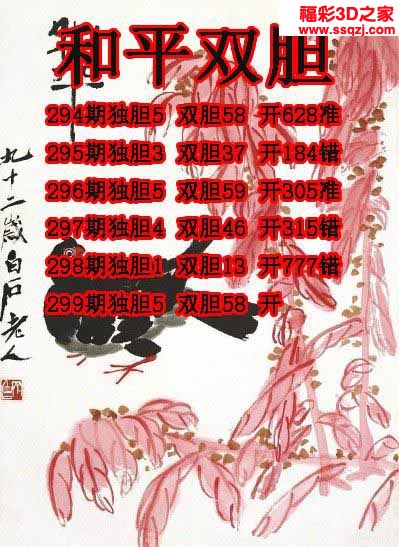 福彩3D之家
www.ssqzj.com
和平双胆
294期独胆5 双胆58 开628准
295期独胆3 双胆37 开184错
296期独胆5 双胆59 开305准
297期独胆4 双胆46 开315错
298期独胆1 双胆13 开777错
299期独胆5 双胆58 开
九十二岁白石老人